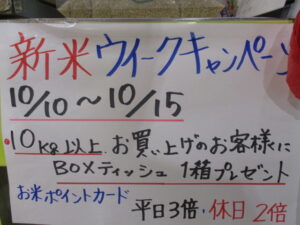 新米ウイークキャンペーン
10/10～10/15
・10Kg以上お買い上げのお客様に
BOXティッシュ 1箱プレゼント
お米ポイントカード
平日3倍・休日2倍